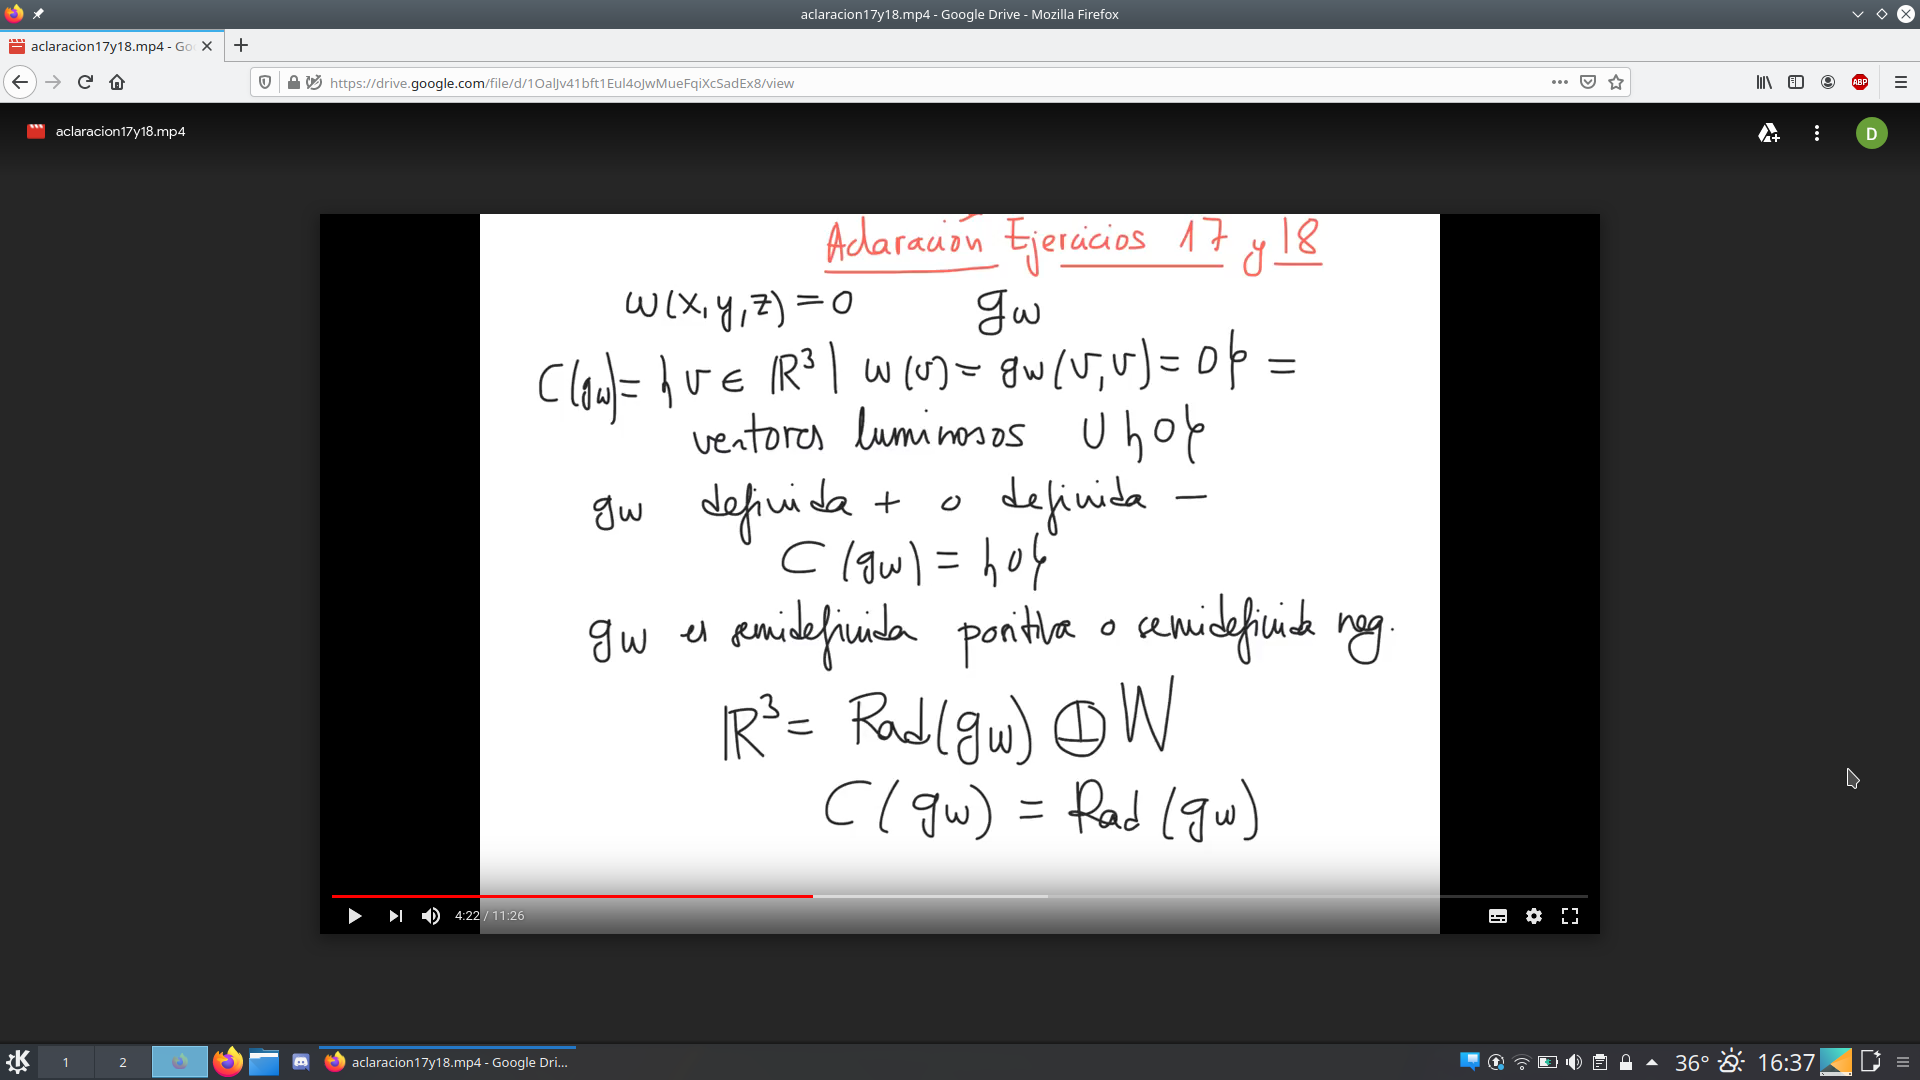 aclaracion17y18.mp4 - Google Drive - Mozilla Firefox
aclaracion17y18.mp4 - Go
https://drive.google.com/file/d/1OalJv41bft1Eul4oJwMueFqiXcSadEx8/view
ABP
aclaracion17y18.mp4
D
Aclaración Ejercicios 17 y 18
ω(x,y,z)=0 gω
C(gω)={v∈ℝ³| ω(v)=gω(v,v)=0}=
vectores luminosos ∪{0}
gω definida + o definida −
C(gω)={0}
gω es semidefinida positiva o semidefinida neg.
ℝ³= Rad(gω) ⊕ W
C(gω) = Rad(gω)
4:22 / 11:26
1 2 aclaracion17y18.mp4 - Google Dri... 36° 16:37